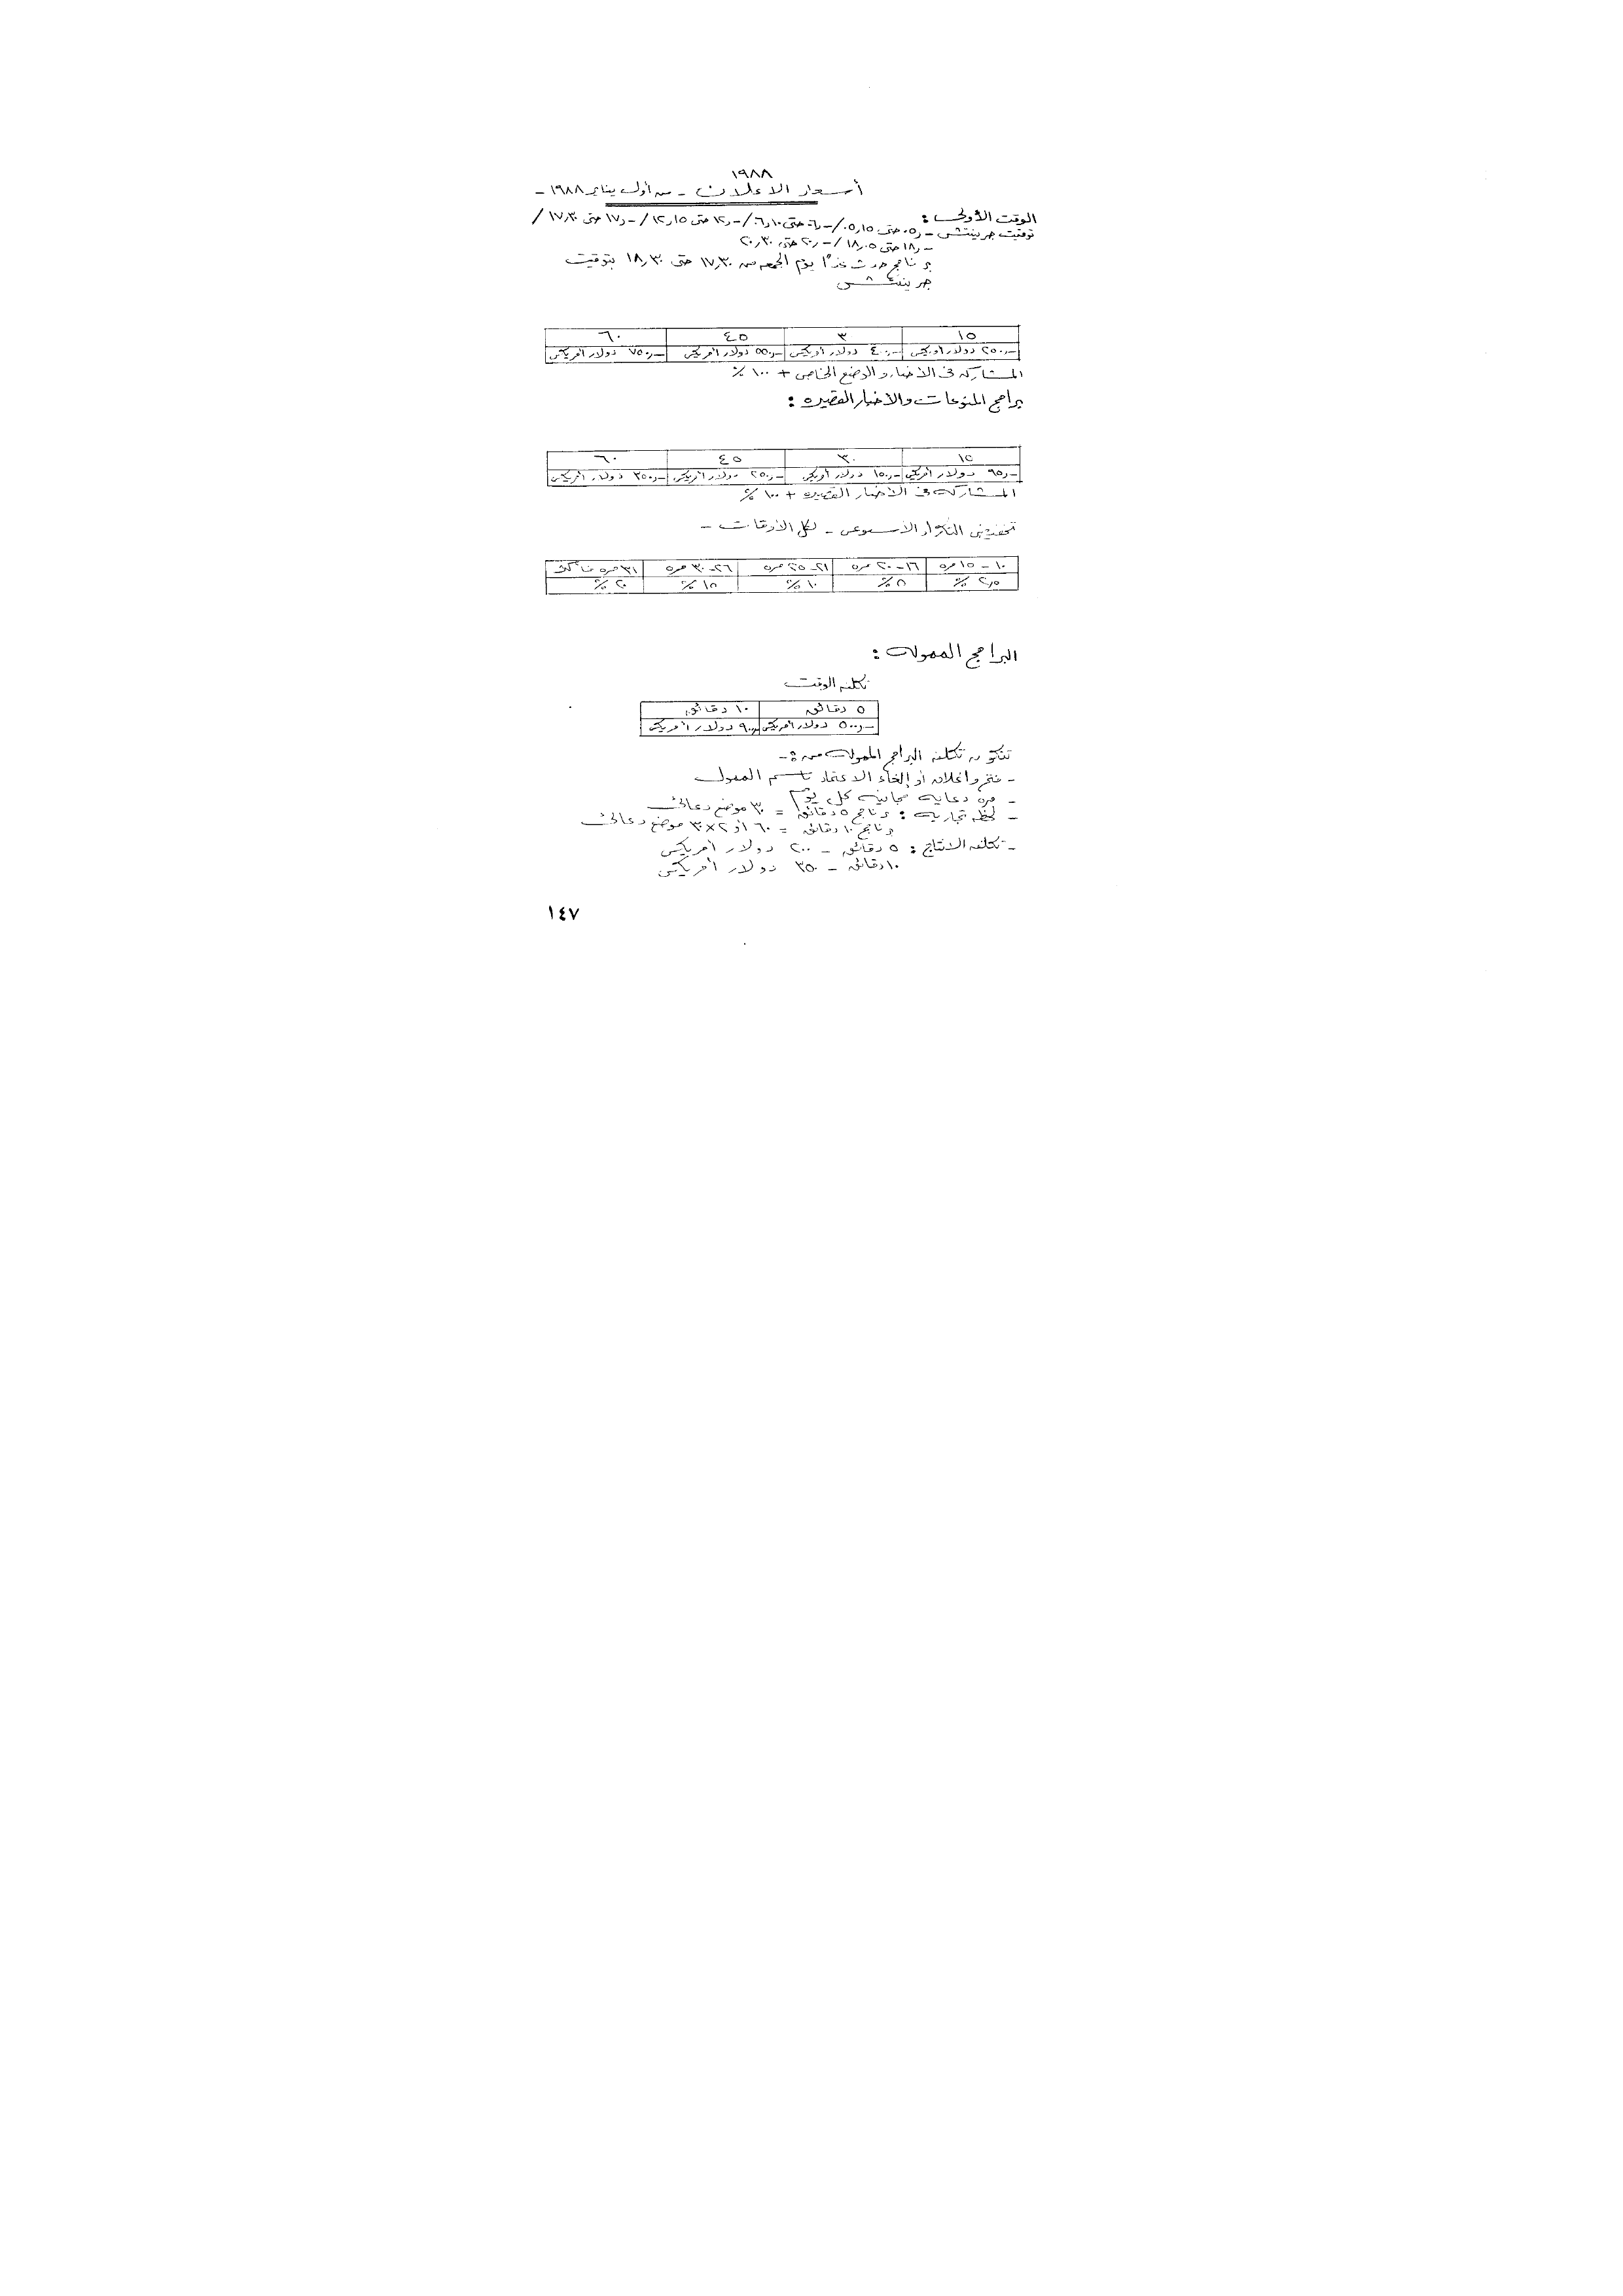 ١٩٨٨
أسعار الاعلان - من أول يناير ١٩٨٨ -
الوقت الأولى :
توقيت جرينتش -ر٠٥ حتى ١٥ر٠٥/-ر٠٦ حتى ١٠ر٠٦/-ر١٢ حتى ١٥ر١٢/-ر١٧ حتى ٣٠ر١٧/
-ر١٨ حتى ٠٥ر١٨/-ر٢٠ حتى ٣٠ر٢٠
برنامج حدث غدًا يوم الجمعه من ٣٠ر١٧ حتى ٣٠ر١٨ بتوقيت
جرينتش
١٥ ٣٠ ٤٥ ٦٠
-ر٢٥٠ دولار أمريكى -ر٤٠٠ دولار أمريكى -ر٥٥٠ دولار أمريكى -ر٧٥٠ دولار أمريكى
المشاركه فى الأخبار والوضع الخاص + ١٠٠ ٪
برامج المنوعات والاخبار القصيره :
١٥ ٣٠ ٤٥ ٦٠
-ر٦٥ دولار أمريكى -ر١٥٠ دولار أمريكى -ر٢٥٠ دولار أمريكى -ر٣٥٠ دولار أمريكى
المشاركه فى الاخبار القصيره + ١٠٠ ٪
تخفيض التكرار الاسبوعى - لكل الأوقات -
١٠ - ١٥ مره ١٦ - ٢٠ مره ٢١ - ٢٥ مره ٢٦ - ٣٠ مره ٣١ مره فأكثر
٢,٥ ٪ ٨ ٪ ١٠ ٪ ١٥ ٪ ٢٠ ٪
البرامج الممولة :
تكلفه الوقت
٥ دقائق ١٠ دقائق
-ر٥٠٠ دولار أمريكى -ر٩٠٠ دولار أمريكى
تتكون تكلفه البرامج الممولة من :-
- فتح واعلان أو إلغاء الاعتماد باسم الممول
- مره دعايه مجانيه كل يوم
- لحظه تجاريه : برنامج ٥ دقائق = ٣٠ موضع دعائى
برنامج ١٠ دقائق = ٦٠ أو ٢×٣٠ موضع دعائى
- تكلفه الانتاج : ٥ دقائق - ٢٠٠ دولار أمريكى
١٠ دقائق - ٣٥٠ دولار أمريكى
١٤٧